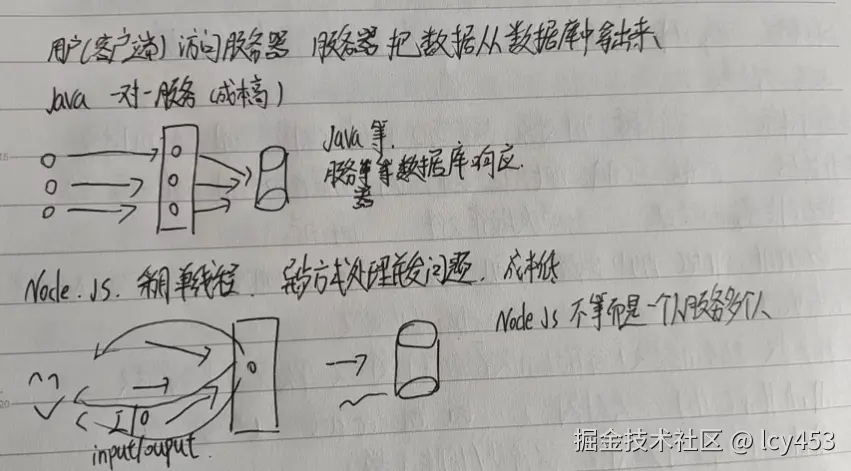 用户(客户端) 访问服务器 服务器把数据从数据库中拿出来、
Java 一对一服务 (成本高)
Java 等.
服务等等数据库响应.
器
Node.js. 采用单线程. 异步方式处理并发问题. 成本低
Node Js 不等而是一个人服务多个人
I/O
input/ouput.
掘金技术社区 @ lcy453